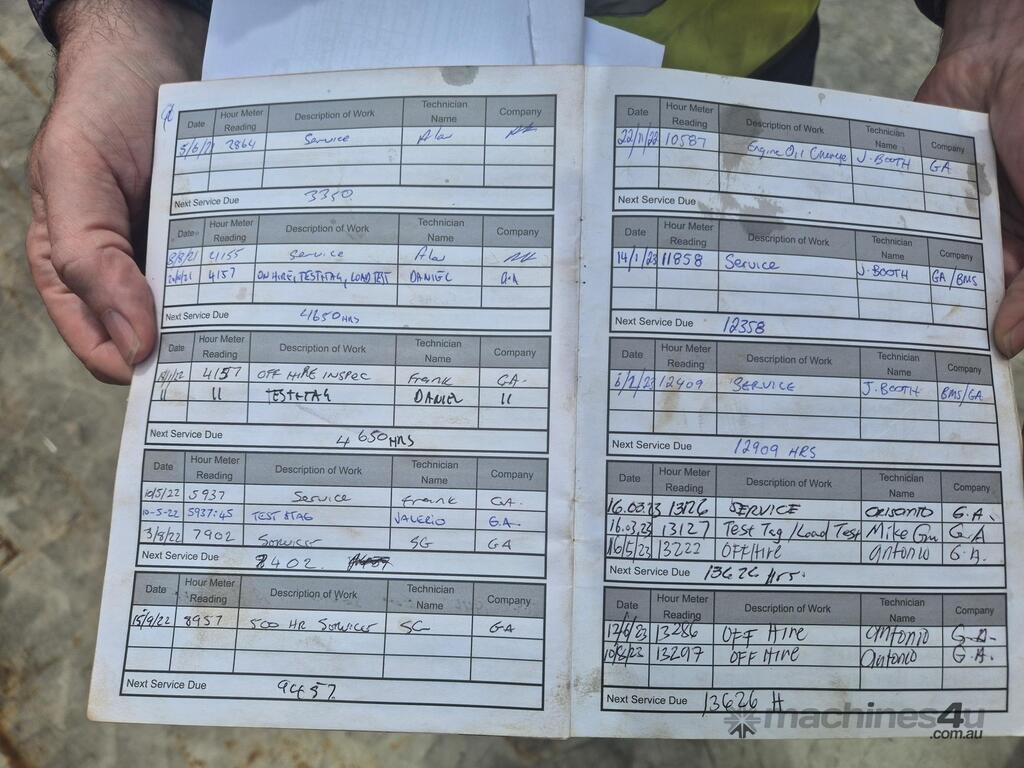 Date Hour Meter Reading Description of Work Technician Name Company
5/6/21 2864 Service Alan
Next Service Due 3350
Date Hour Meter Reading Description of Work Technician Name Company
8/8/21 4155 Service Alan
4157 ON HIRE, TEST&TAG, LOAD TEST DANIEL G.A
Next Service Due 4650 HRS
Date Hour Meter Reading Description of Work Technician Name Company
4157 OFF HIRE INSPEC Frank GA.
11 11 TEST&TAG DANIEL 11
Next Service Due 4650 HRS
Date Hour Meter Reading Description of Work Technician Name Company
10/5/22 5937 Service Frank GA.
10-5-22 5937:45 TEST &TAG VALERIO G.A.
3/8/22 7902 Service SG GA
Next Service Due 8402.
Date Hour Meter Reading Description of Work Technician Name Company
15/9/22 8957 500 HR SERVICE SG GA
Next Service Due 9457.
Date Hour Meter Reading Description of Work Technician Name Company
22/11/22 10587 Engine Oil Change J. BOOTH GA
Next Service Due
Date Hour Meter Reading Description of Work Technician Name Company
14/1/23 11858 Service J. BOOTH GA/BMS
Next Service Due 12358
Date Hour Meter Reading Description of Work Technician Name Company
12409 SERVICE J. BOOTH BMS/GA
Next Service Due 12909 HRS
Date Hour Meter Reading Description of Work Technician Name Company
16.03.23 13126 SERVICE G.A.
16.03.23 13127 Test Tag /Load Test Mike G.A
16/5/23 13222 OFF/Hire antonio G.A.
Next Service Due 13626 Hrs.
Date Hour Meter Reading Description of Work Technician Name Company
12/6/23 13286 OFF Hire antonio G.A.
10/8/23 13297 OFF Hire antonio G.A.
Next Service Due 13626 H
machines4u
.com.au